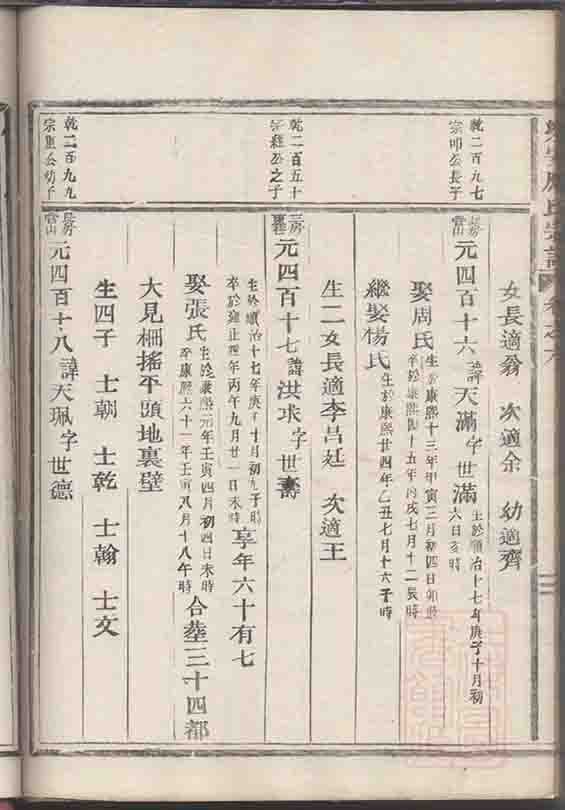 女長適翁 次適余 幼適齊
乾二百九七
宗明公長子
長房
元四百十六諱天滿字世滿生於順治十七年庚子十月初
六日亥時
娶周氏生於康熙十三年甲寅三月初四日卯時
卒於康熙四十五年丙戌七月十二辰時
繼娶楊氏生於康熙廿四年乙丑七月十六子時
生二女長適李呂廷 次適王
乾二百五十
公之子
三房
元四百十七諱洪求字世壽
生於順治十七年庚子十月初九子時
卒於雍正四年丙午九月廿一日未時
享年六十有七
娶張氏生於康熙元年壬寅四月初四日未時
卒康熙六十一年壬寅八月十八午時
合塟三十四都
大見柵搖平頭地裏壁
生四子 士朝 士乾 士翰 士文
乾二百九九
宗重公幼子
長房
元四百十八諱天珮字世德